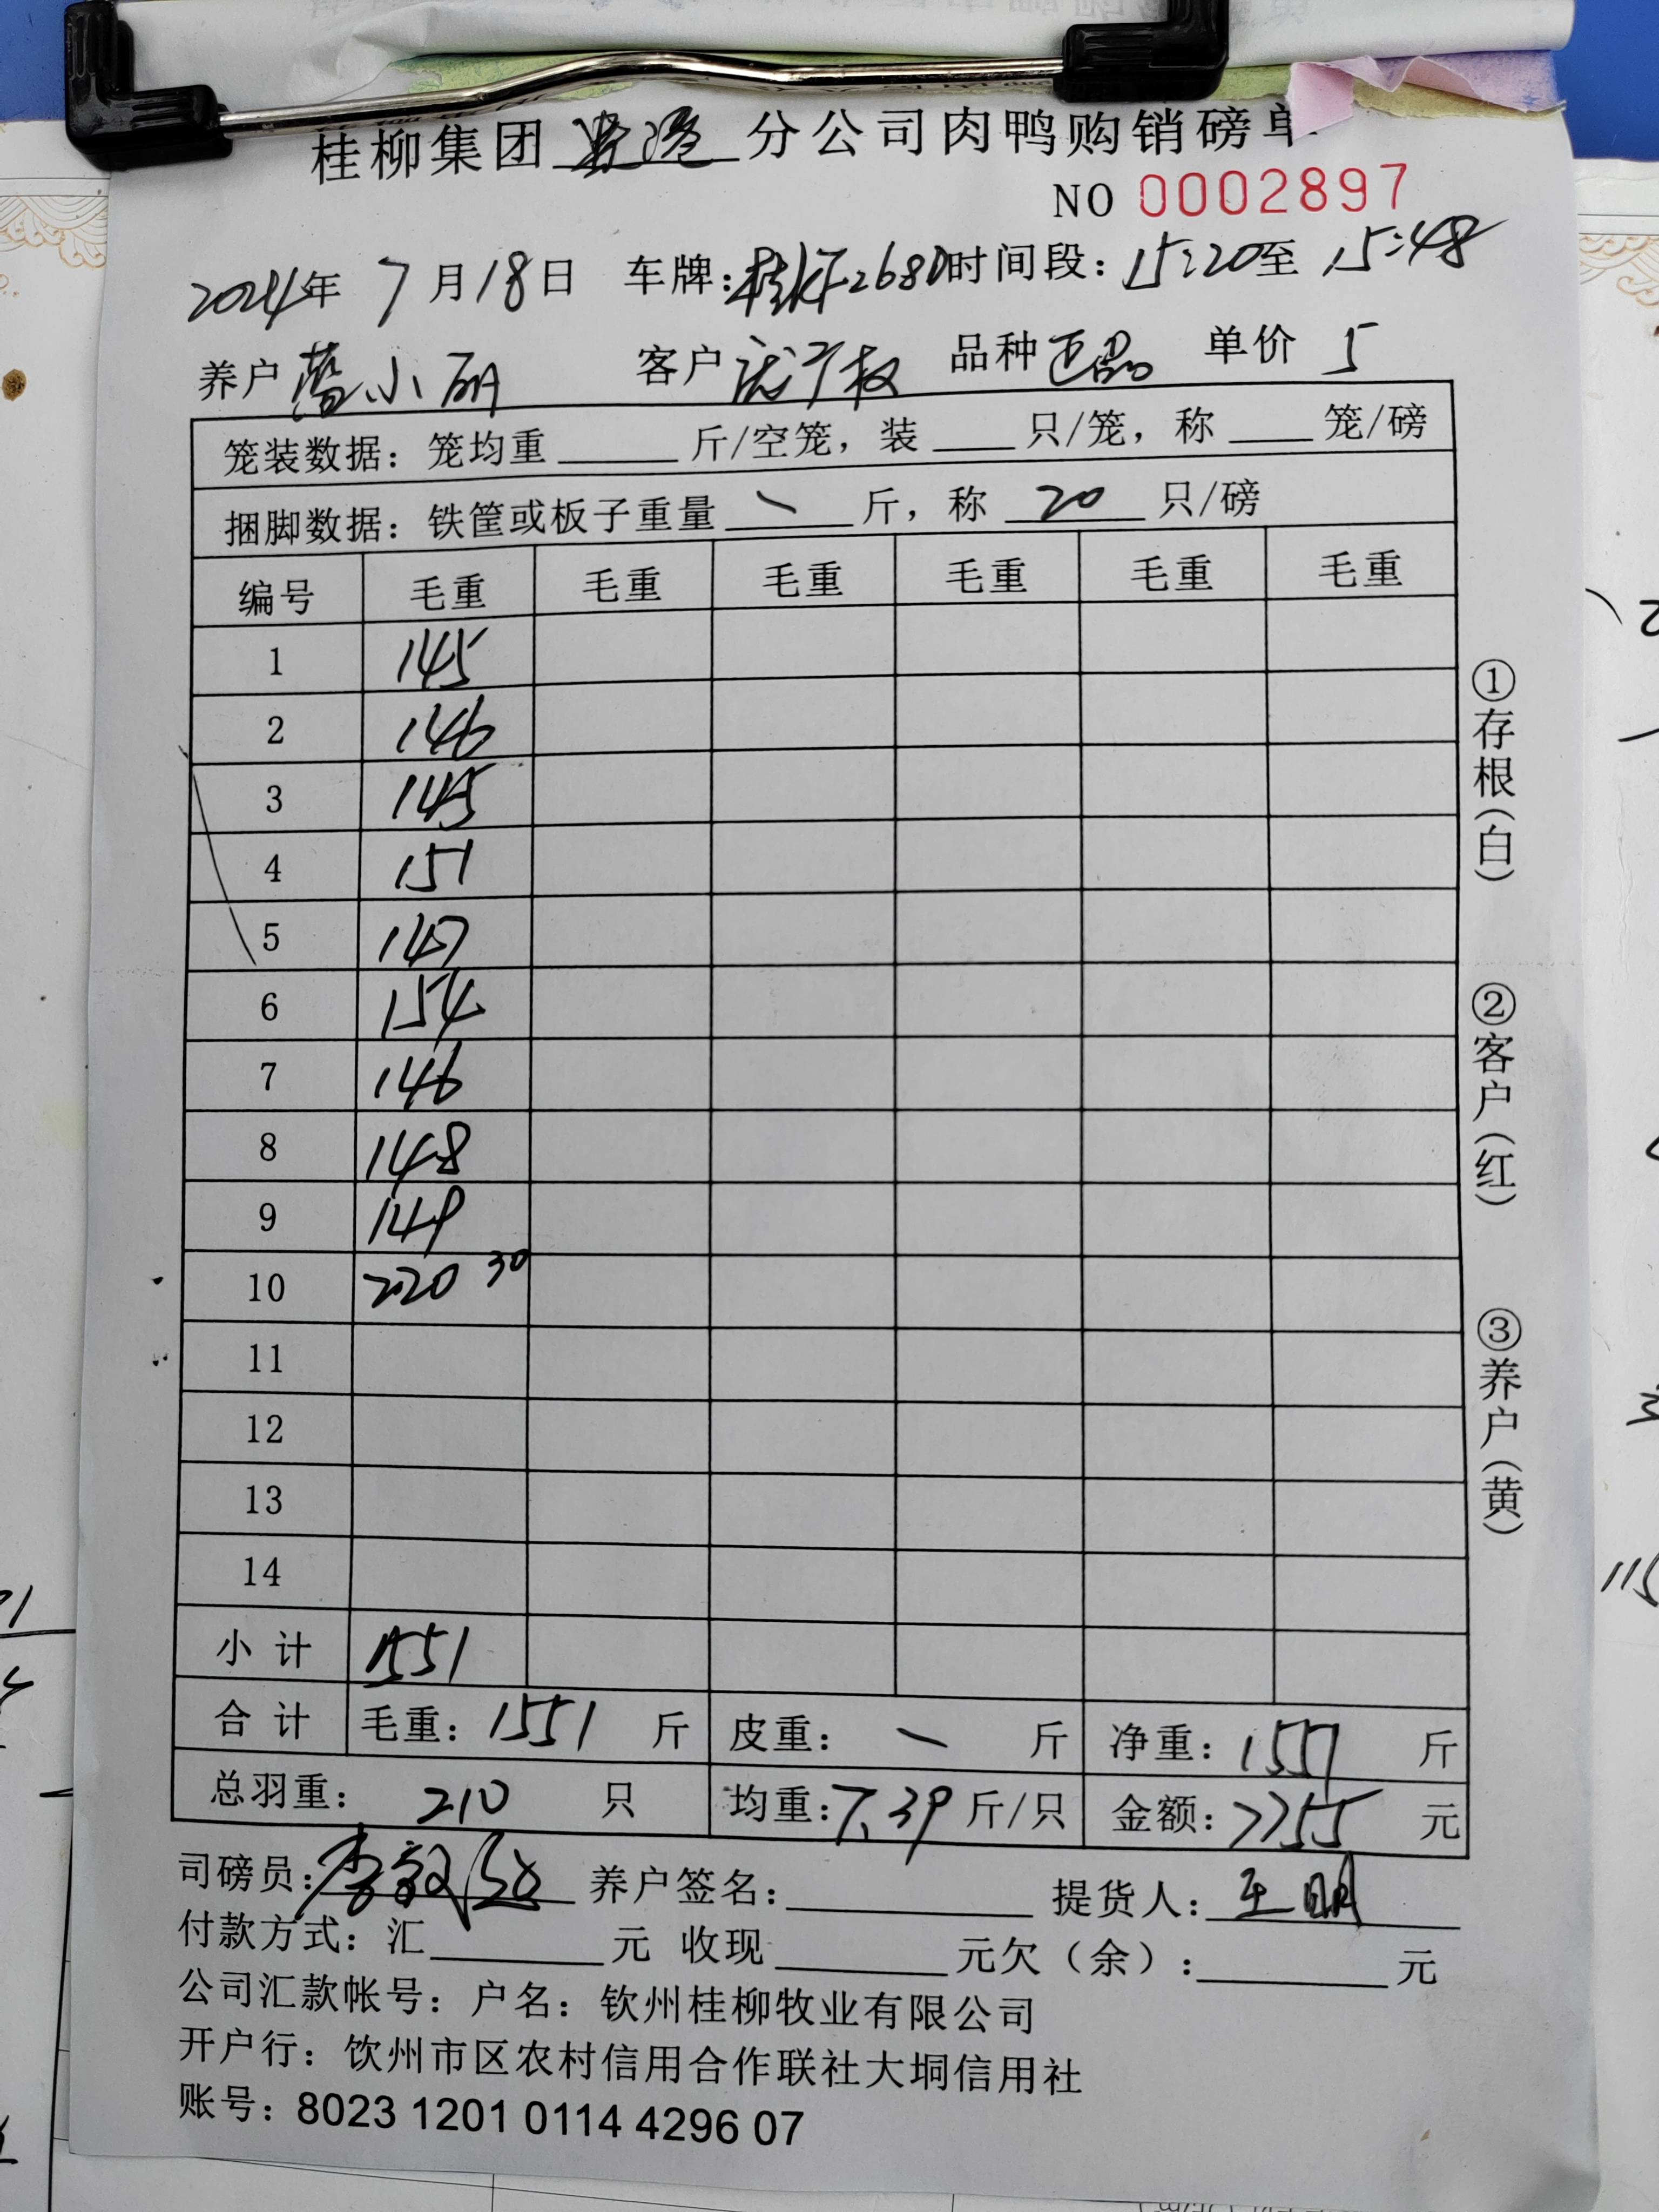 桂柳集团 贵港 分公司肉鸭购销磅单
NO 0002897
2024年 7月18日 车牌: 2680 时间段: 15:20至 15:48
养户 小丽 客户 品种 正品 单价 5
笼装数据: 笼均重 斤/空笼, 装 只/笼, 称 笼/磅
捆脚数据: 铁筐或板子重量 斤, 称 20 只/磅
编号 毛重 毛重 毛重 毛重 毛重 毛重
1 145
2 146
3 145
4 151
5 147
6 154
7 146
8 148
9 149
10 220 30
11
12
13
14
小计 1551
合计 毛重: 1551 斤 皮重: 斤 净重: 斤
总羽重: 210 只 均重: 7.39 斤/只 金额: 7755 元
司磅员: 李 养户签名: 提货人: 王明
付款方式: 汇 元 收现 元欠(余): 元
公司汇款帐号: 户名: 钦州桂柳牧业有限公司
开户行: 钦州市区农村信用合作联社大垌信用社
账号: 8023 1201 0114 4296 07
①存根(白)
②客户(红)
③养户(黄)